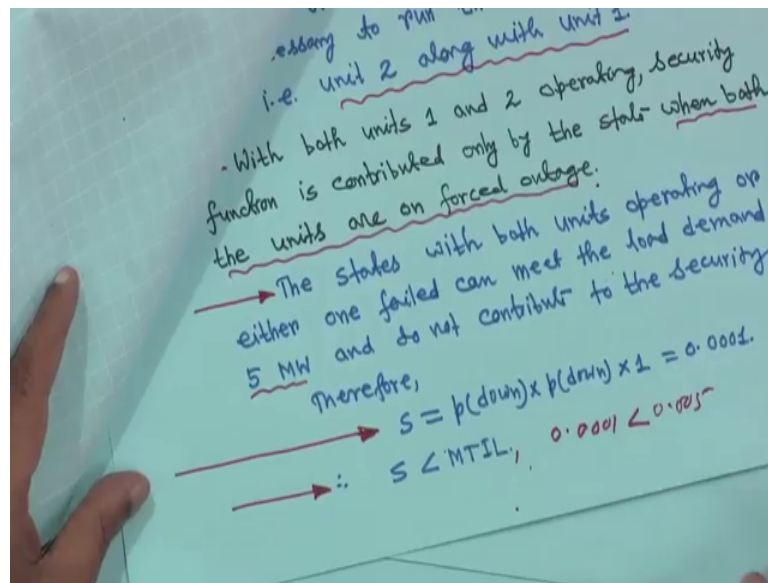 essary to run
i.e. unit 2 along with unit 1.
- With both units 1 and 2 operating, security
function is contributed only by the state when both
the units are on forced outage.
The states with both units operating or
either one failed can meet the load demand
5 MW and do not contribute to the security
Therefore,
S = p(down) x p(down) x 1 = 0.0001.
∴ S < MTIL, 0.0001 < 0.005